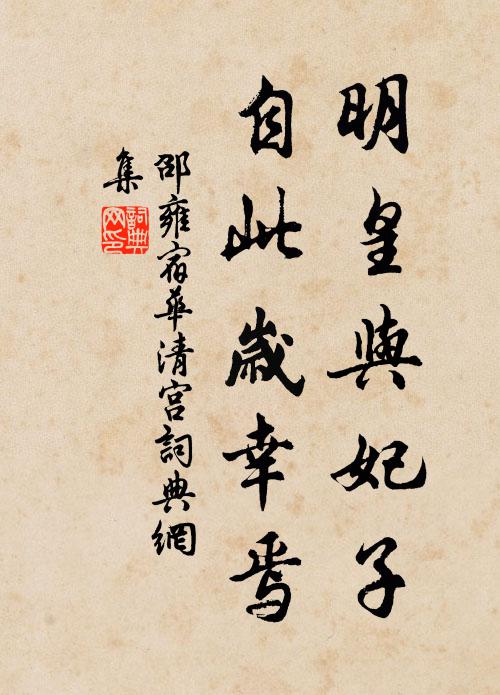 明皇與妃子
自此歲幸焉
邵雍宿華清宮詞典網
集
詞典
网印